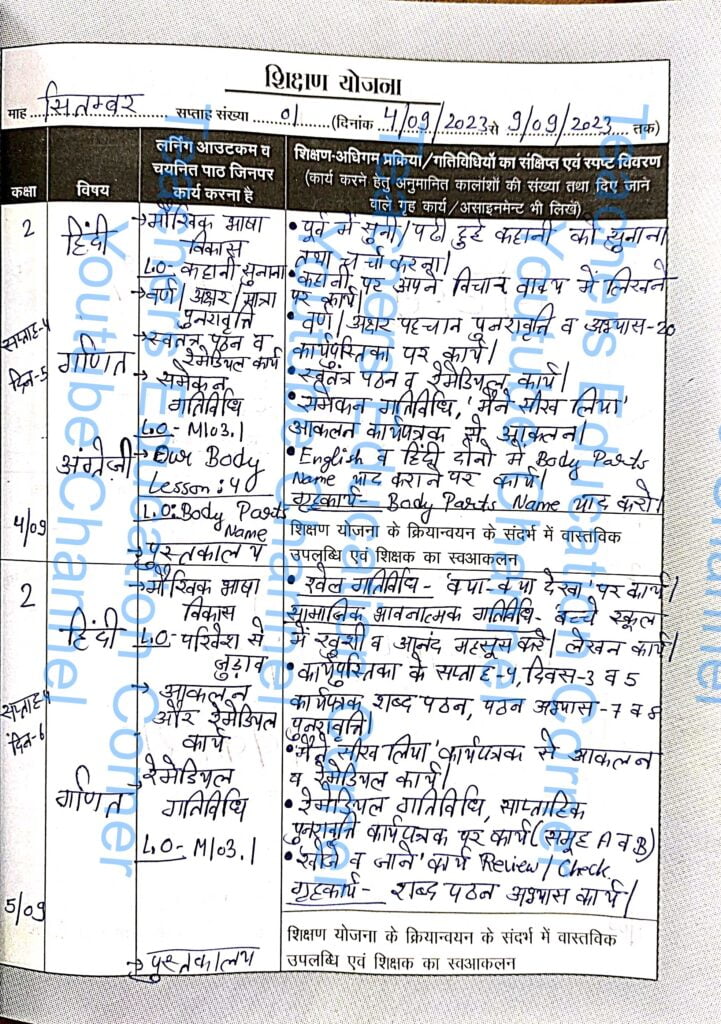 शिक्षण योजना
माह सितम्बर सप्ताह संख्या 01 (दिनांक 4/09/2023 से 9/09/2023 तक)
कक्षा
विषय
लर्निंग आउटकम व
चयनित पाठ जिनपर
कार्य करना है
शिक्षण-अधिगम प्रक्रिया/गतिविधियों का संक्षिप्त एवं स्पष्ट विवरण
(कार्य करने हेतु अनुमानित कालांशों की संख्या तथा दिए जाने
वाले गृह कार्य/असाइनमेंट भी लिखें)
2
सप्ताह-4
दिन-5
4/09
हिंदी
गणित
अंग्रेजी
→मौखिक भाषा
विकास
L.O- कहानी सुनाना
→वर्ण/अक्षर/मात्रा
पुनरावृत्ति
→स्वतंत्र पठन व
रेमेडियल कार्य
→समेकन
गतिविधि
L.O- M103.1
→Our Body
Lesson: 4
L.O: Body Parts
Name
→पुस्तकालय
• पूर्व में सुनी/पढ़ी हुई कहानी को सुनाना
तथा चर्चा करना।
• कहानी पर अपने विचार वाक्य में लिखने
पर कार्य।
• वर्ण/अक्षर पहचान पुनरावृत्ति व अभ्यास-20
कार्यपुस्तिका पर कार्य।
• स्वतंत्र पठन व रेमेडियल कार्य।
• समेकन गतिविधि, 'मैंने सीख लिया'
आकलन कार्यपत्रक से आकलन।
• English व हिंदी दोनों में Body Parts
Name याद कराने पर कार्य।
गृहकार्य- Body Parts Name याद करो।
शिक्षण योजना के क्रियान्वयन के संदर्भ में वास्तविक
उपलब्धि एवं शिक्षक का स्वआकलन
2
सप्ताह-4
दिन-6
5/09
हिंदी
गणित
→मौखिक भाषा
विकास
L.O- परिवेश से
जुड़ाव
→आकलन
और रेमेडियल
कार्य
→रेमेडियल
गतिविधि
L.O- M103.1
→पुस्तकालय
• खेल गतिविधि- 'क्या-क्या देखा' पर कार्य।
सामाजिक भावनात्मक गतिविधि- बच्चे स्कूल
में खुशी व आनंद महसूस करें। लेखन कार्य।
• कार्यपुस्तिका के सप्ताह-4, दिवस-3 व 5
कार्यपत्रक शब्द पठन, पठन अभ्यास-7 व 8
पुनरावृत्ति।
• 'मैंने सीख लिया' कार्यपत्रक से आकलन
व रेमेडियल कार्य।
• रेमेडियल गतिविधि, साप्ताहिक
पुनरावृत्ति कार्यपत्रक पर कार्य (समूह A व B)
• 'खोजें व जानें' कार्य Review/Check.
गृहकार्य- शब्द पठन अभ्यास कार्य।
शिक्षण योजना के क्रियान्वयन के संदर्भ में वास्तविक
उपलब्धि एवं शिक्षक का स्वआकलन
Teachers Education Corner
Youtube Channel
Teachers Education Corner
Youtube Channel
Teachers Education Corner
Youtube Channel